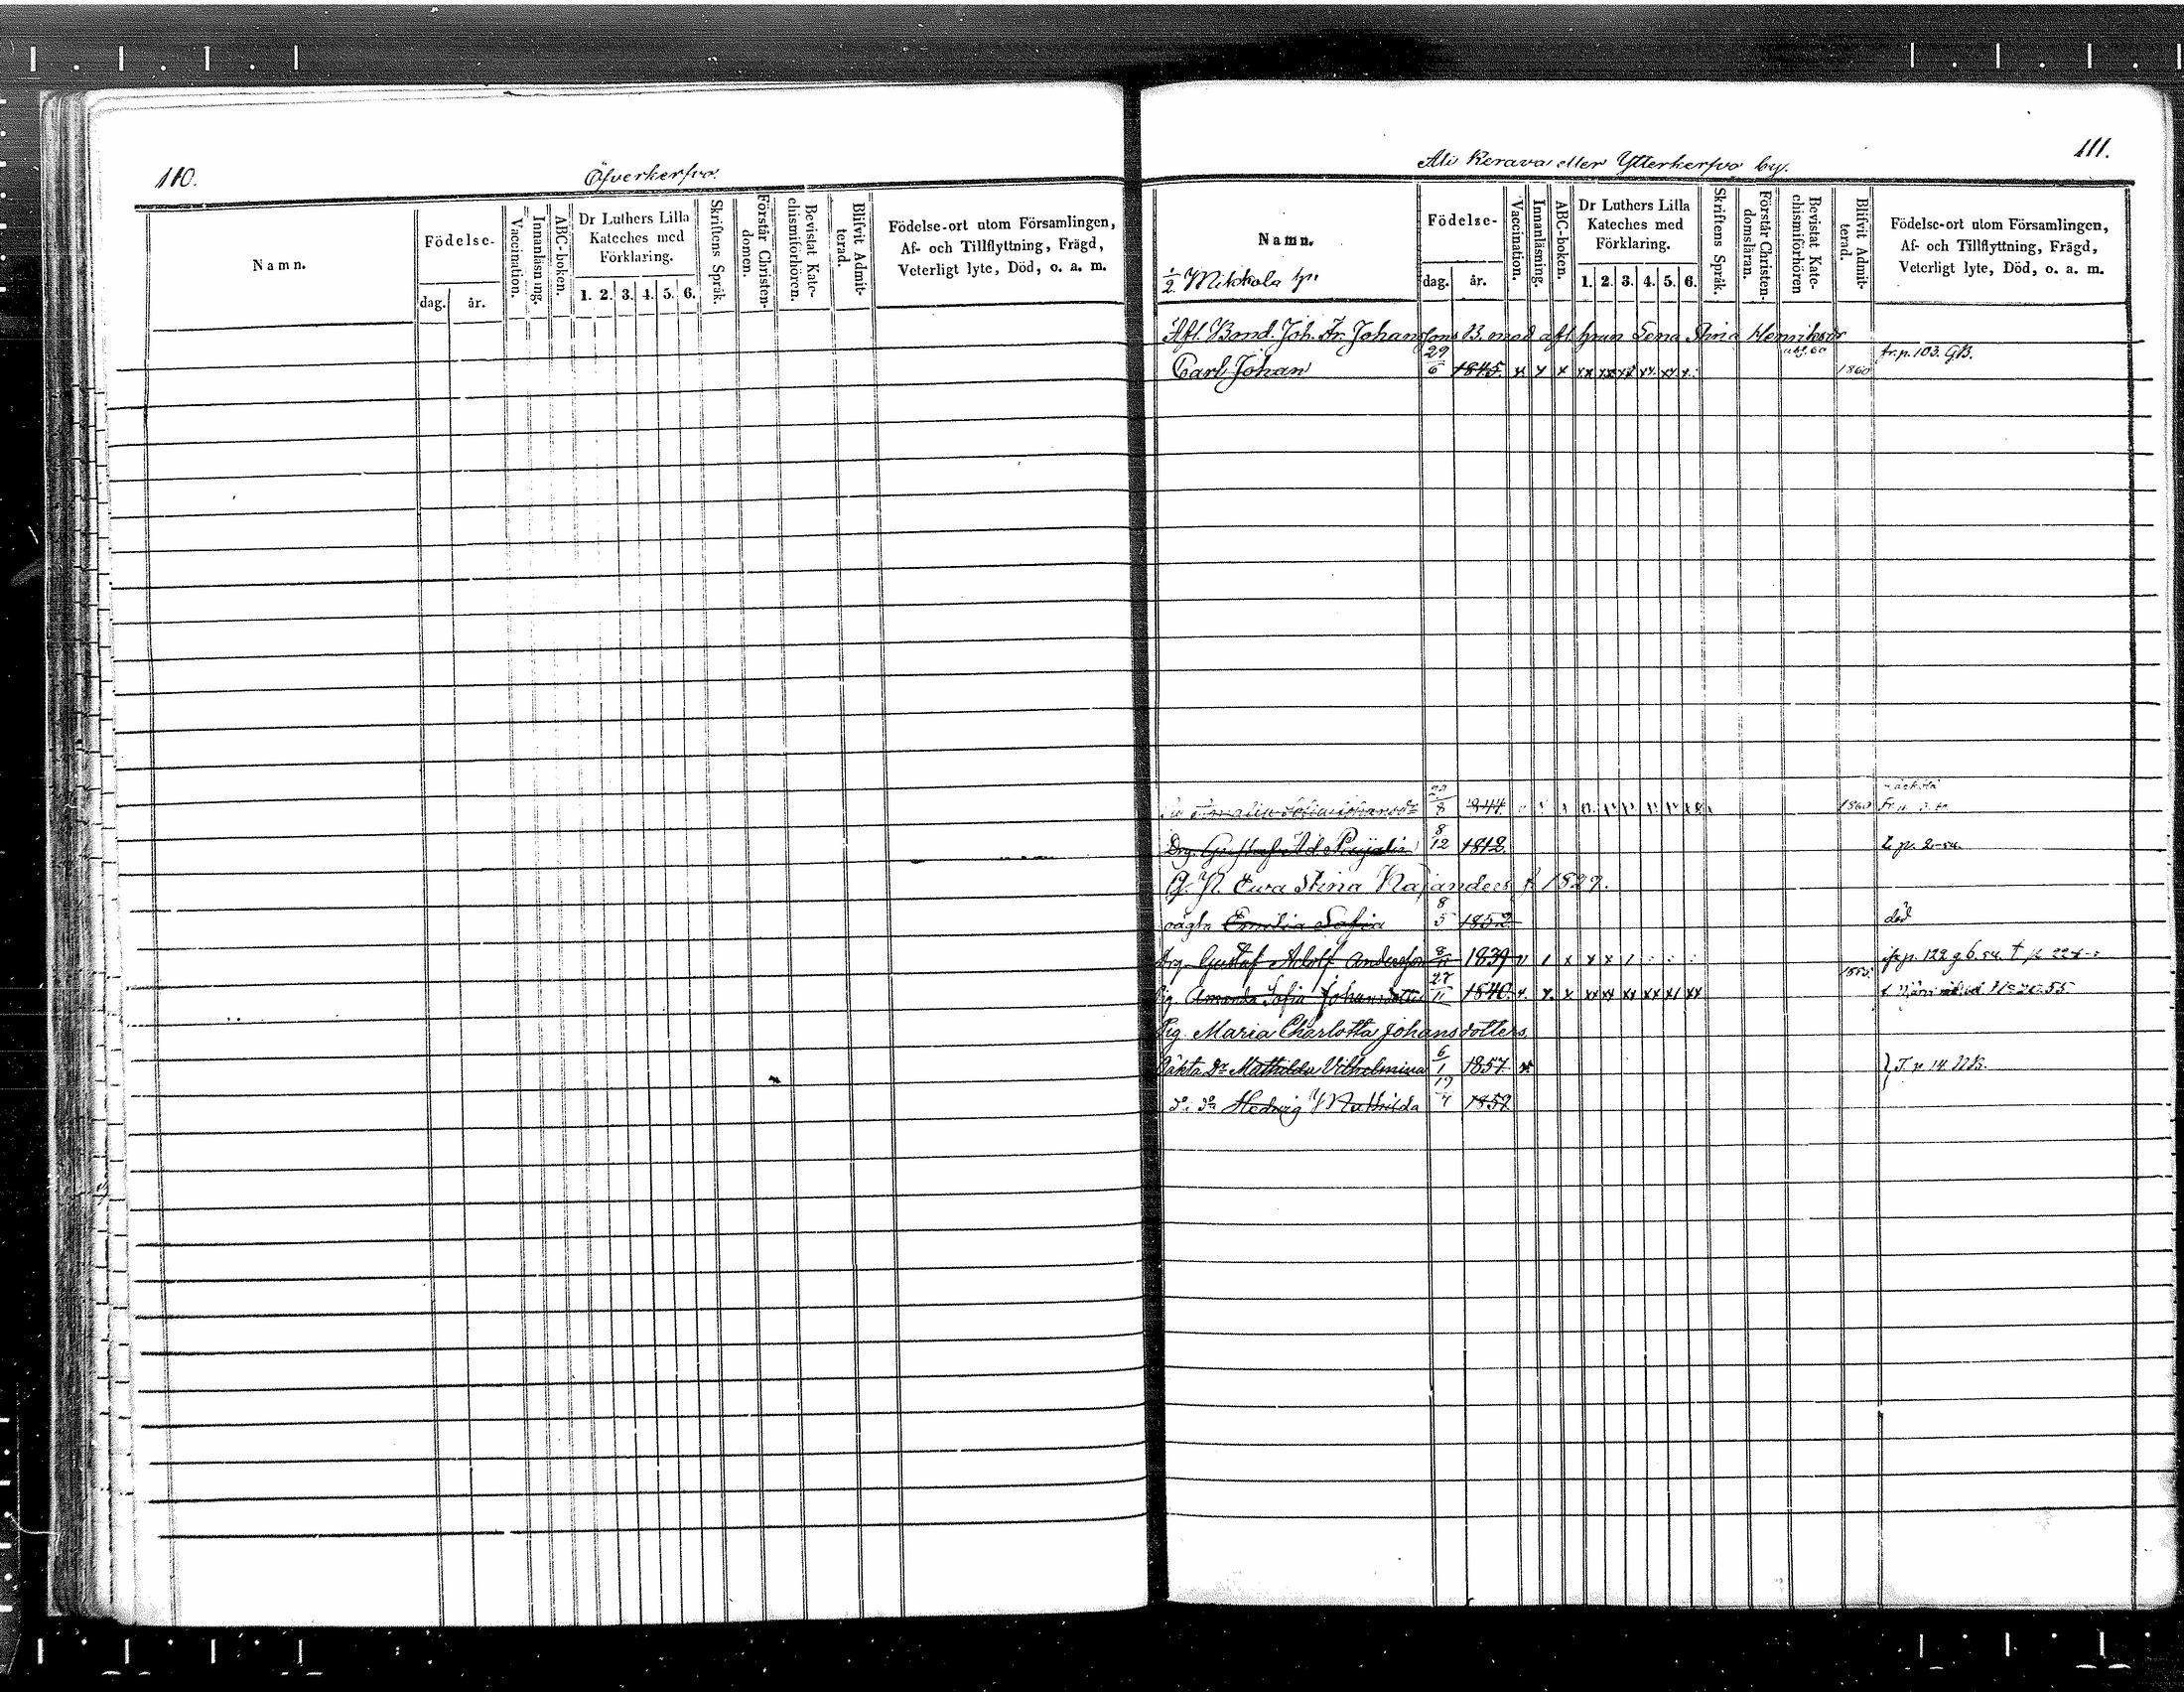 110.
Öfverkerfvo.
Namn.
Födelse-
dag. år.
Vaccination.
Innanläsning.
ABC-boken.
Dr Luthers Lilla
Kateches med
Förklaring.
1. 2. 3. 4. 5. 6.
Skriftens Språk.
Förstår Christen-
domen.
Bevistat Kate-
chismiförhören.
Blifvit Admit-
terad.
Födelse-ort utom Församlingen,
Af- och Tillflyttning, Frägd,
Veterligt lyte, Död, o. a. m.
111.
Ali Kerava eller Ytterkerfvo by.
Namn.
1/2 Mikkola
Födelse-
dag. år.
Vaccination.
Innanläsning.
ABC-boken.
Dr Luthers Lilla
Kateches med
Förklaring.
1. 2. 3. 4. 5. 6.
Skriftens Språk.
Förstår Christen-
domsläran.
Bevistat Kate-
chismiförhören
Blifvit Admit-
terad.
Födelse-ort utom Församlingen,
Af- och Tillflyttning, Frägd,
Veterligt lyte, Död, o. a. m.
Afl. Bond. Joh. Fr. Johanssons B. med afl. hrun Lena Stina Henriksdr
Carl Johan 29/6 1845. x x x xx xx xx xx xx x. 1860 fr. p. 103. GB.
8 1844 1860
Drg. Gustaf Ad. 8/12 1812.
Ewa Stina f 1829.
oägta Emilia Sofia 8/5 1852 död
Drg Gustaf Adolf Andersson 8 1839 x x x p. 122
Pig. Amanda Sofia Johansdotter 27/11 1840. x. x. x xx xx xx xx xx 1855
Pig. Maria Charlotta Johansdotters
Oäkta Dr Mathilda Vilhelmina 6/1 1857 x } T. p 14
do do Hedvig Mathilda 19/4 1859